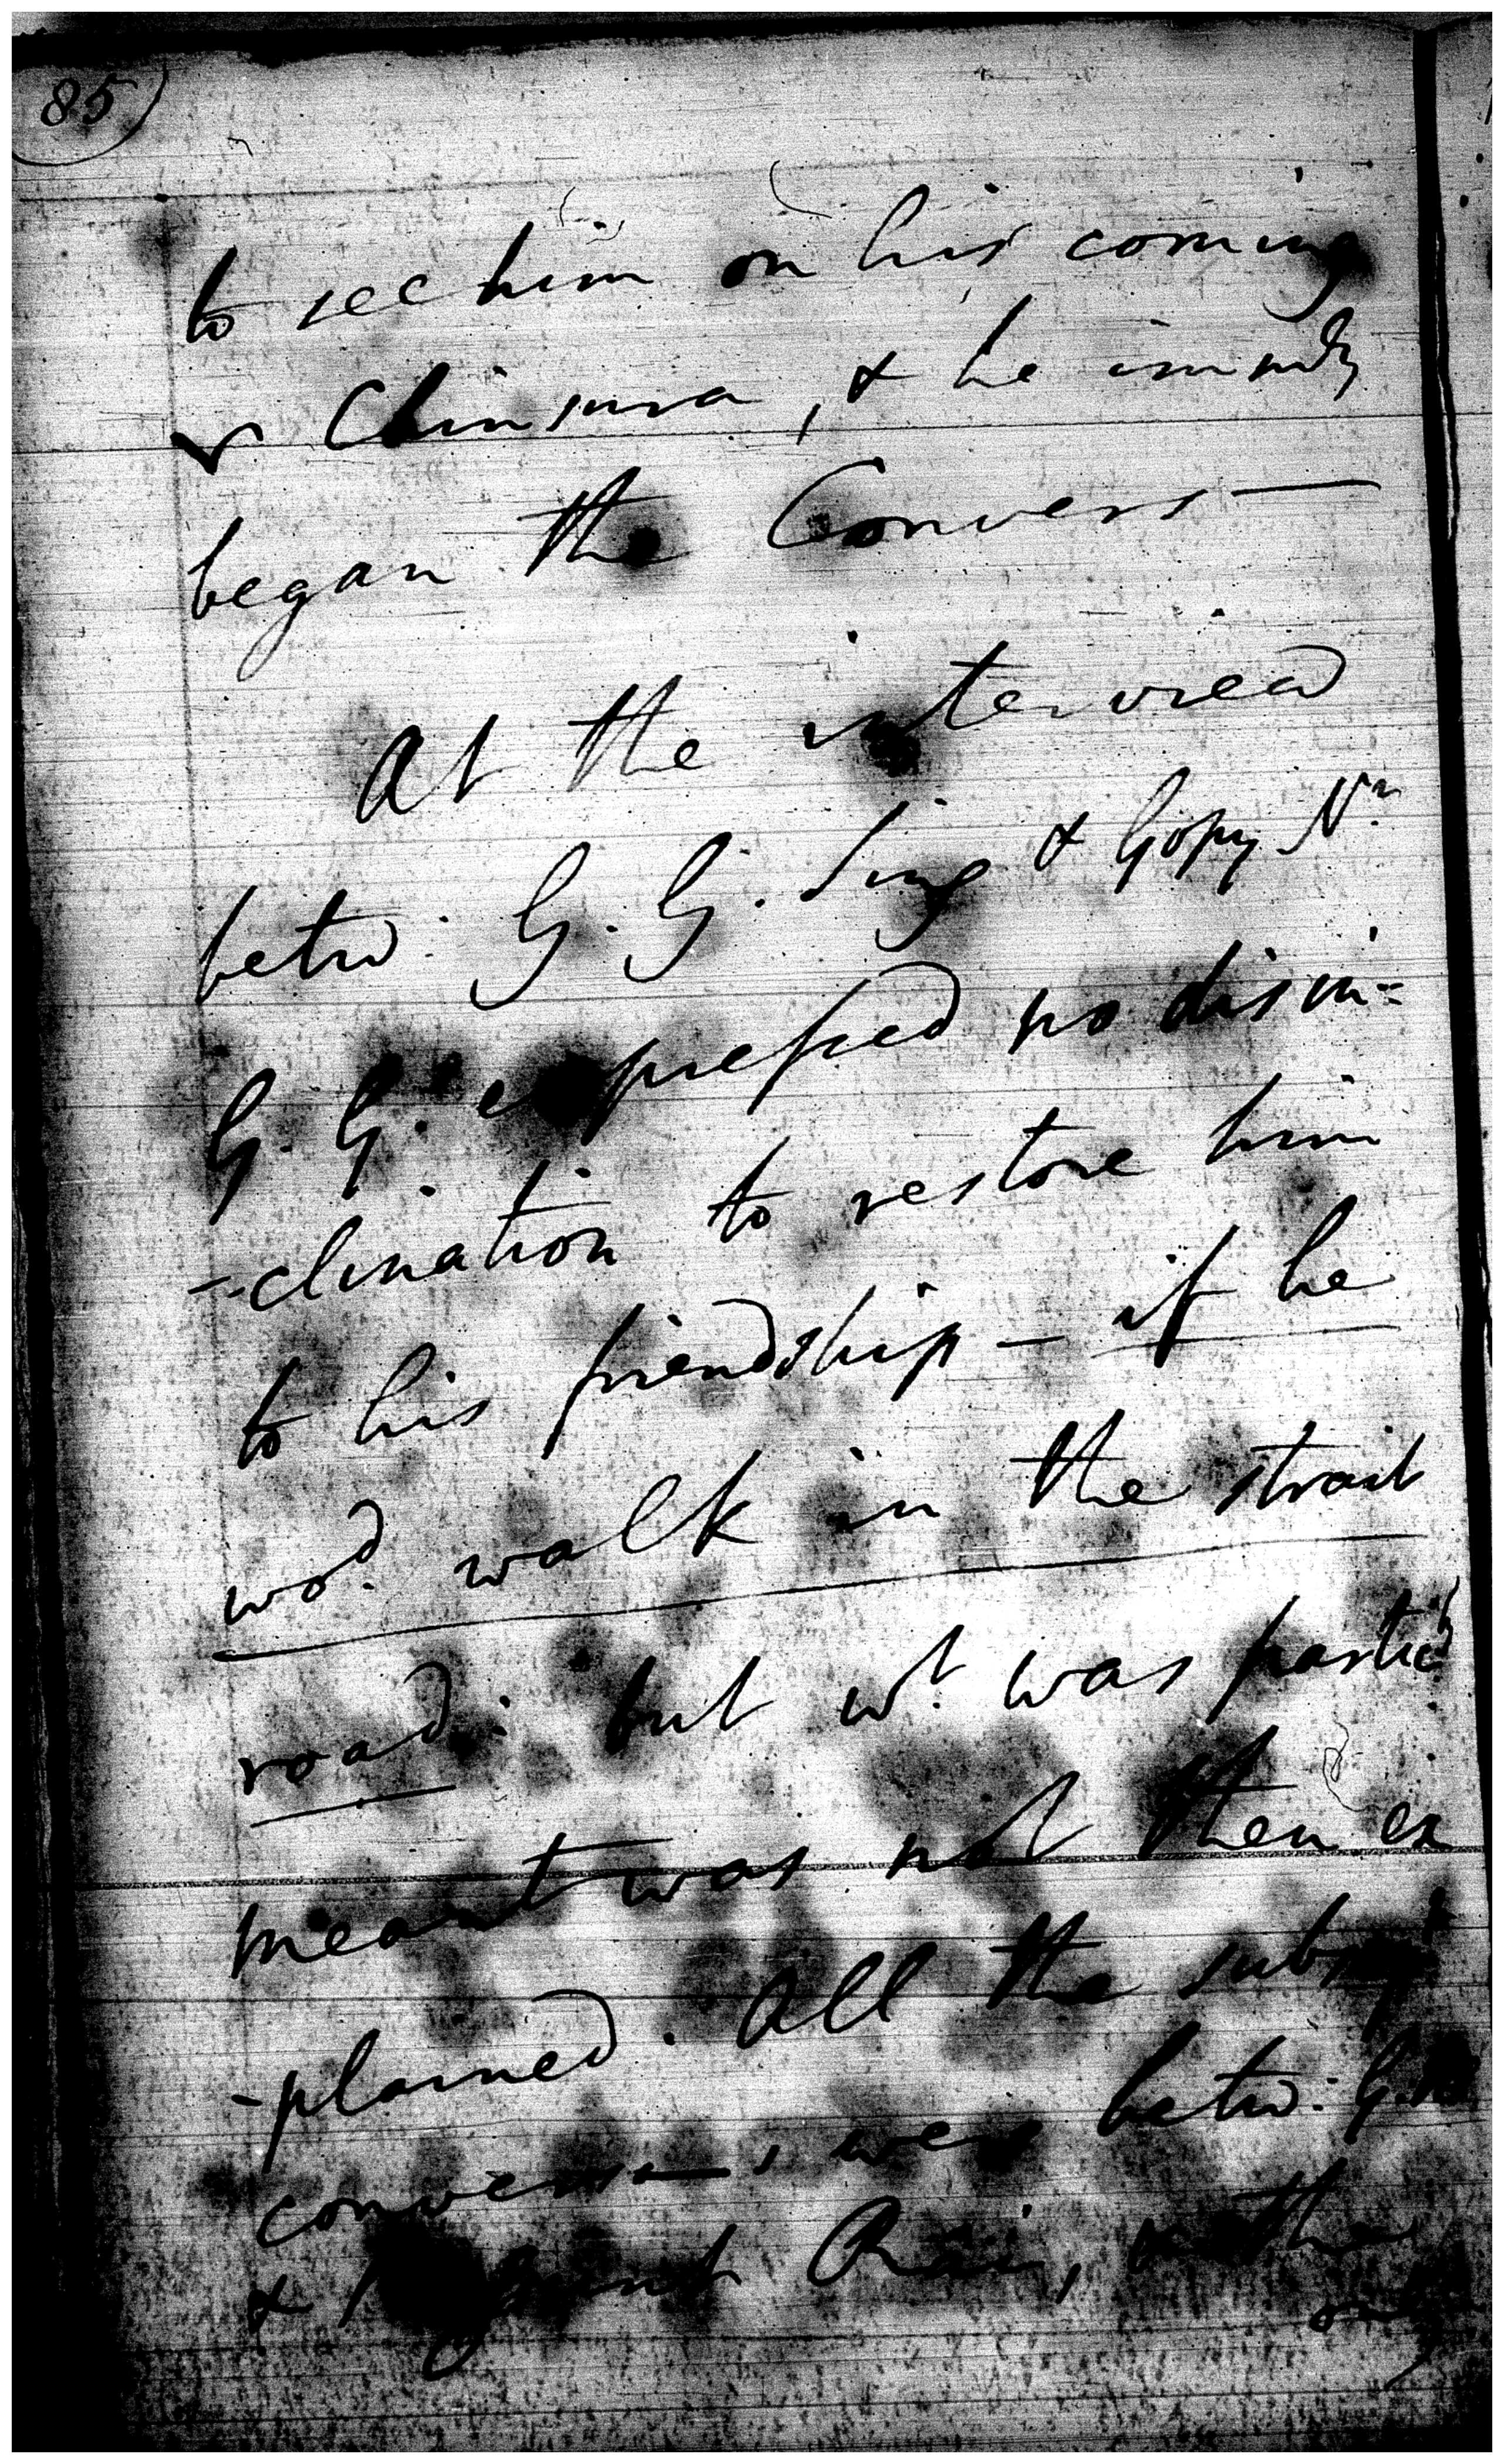 85)
to see him on his coming
Chinsura, & he immdy
began the Convers—
At the interview
betw. G. G. Sing & Gopy Nn.
G. G. expressed no disin=
-clination to restore him
to his friendship – if he
wod. walk in the strait
road: but wt. was particr.
meant was not then ex
-plained. All the subsqt
convers—s were betw. G.
& Rain,
only